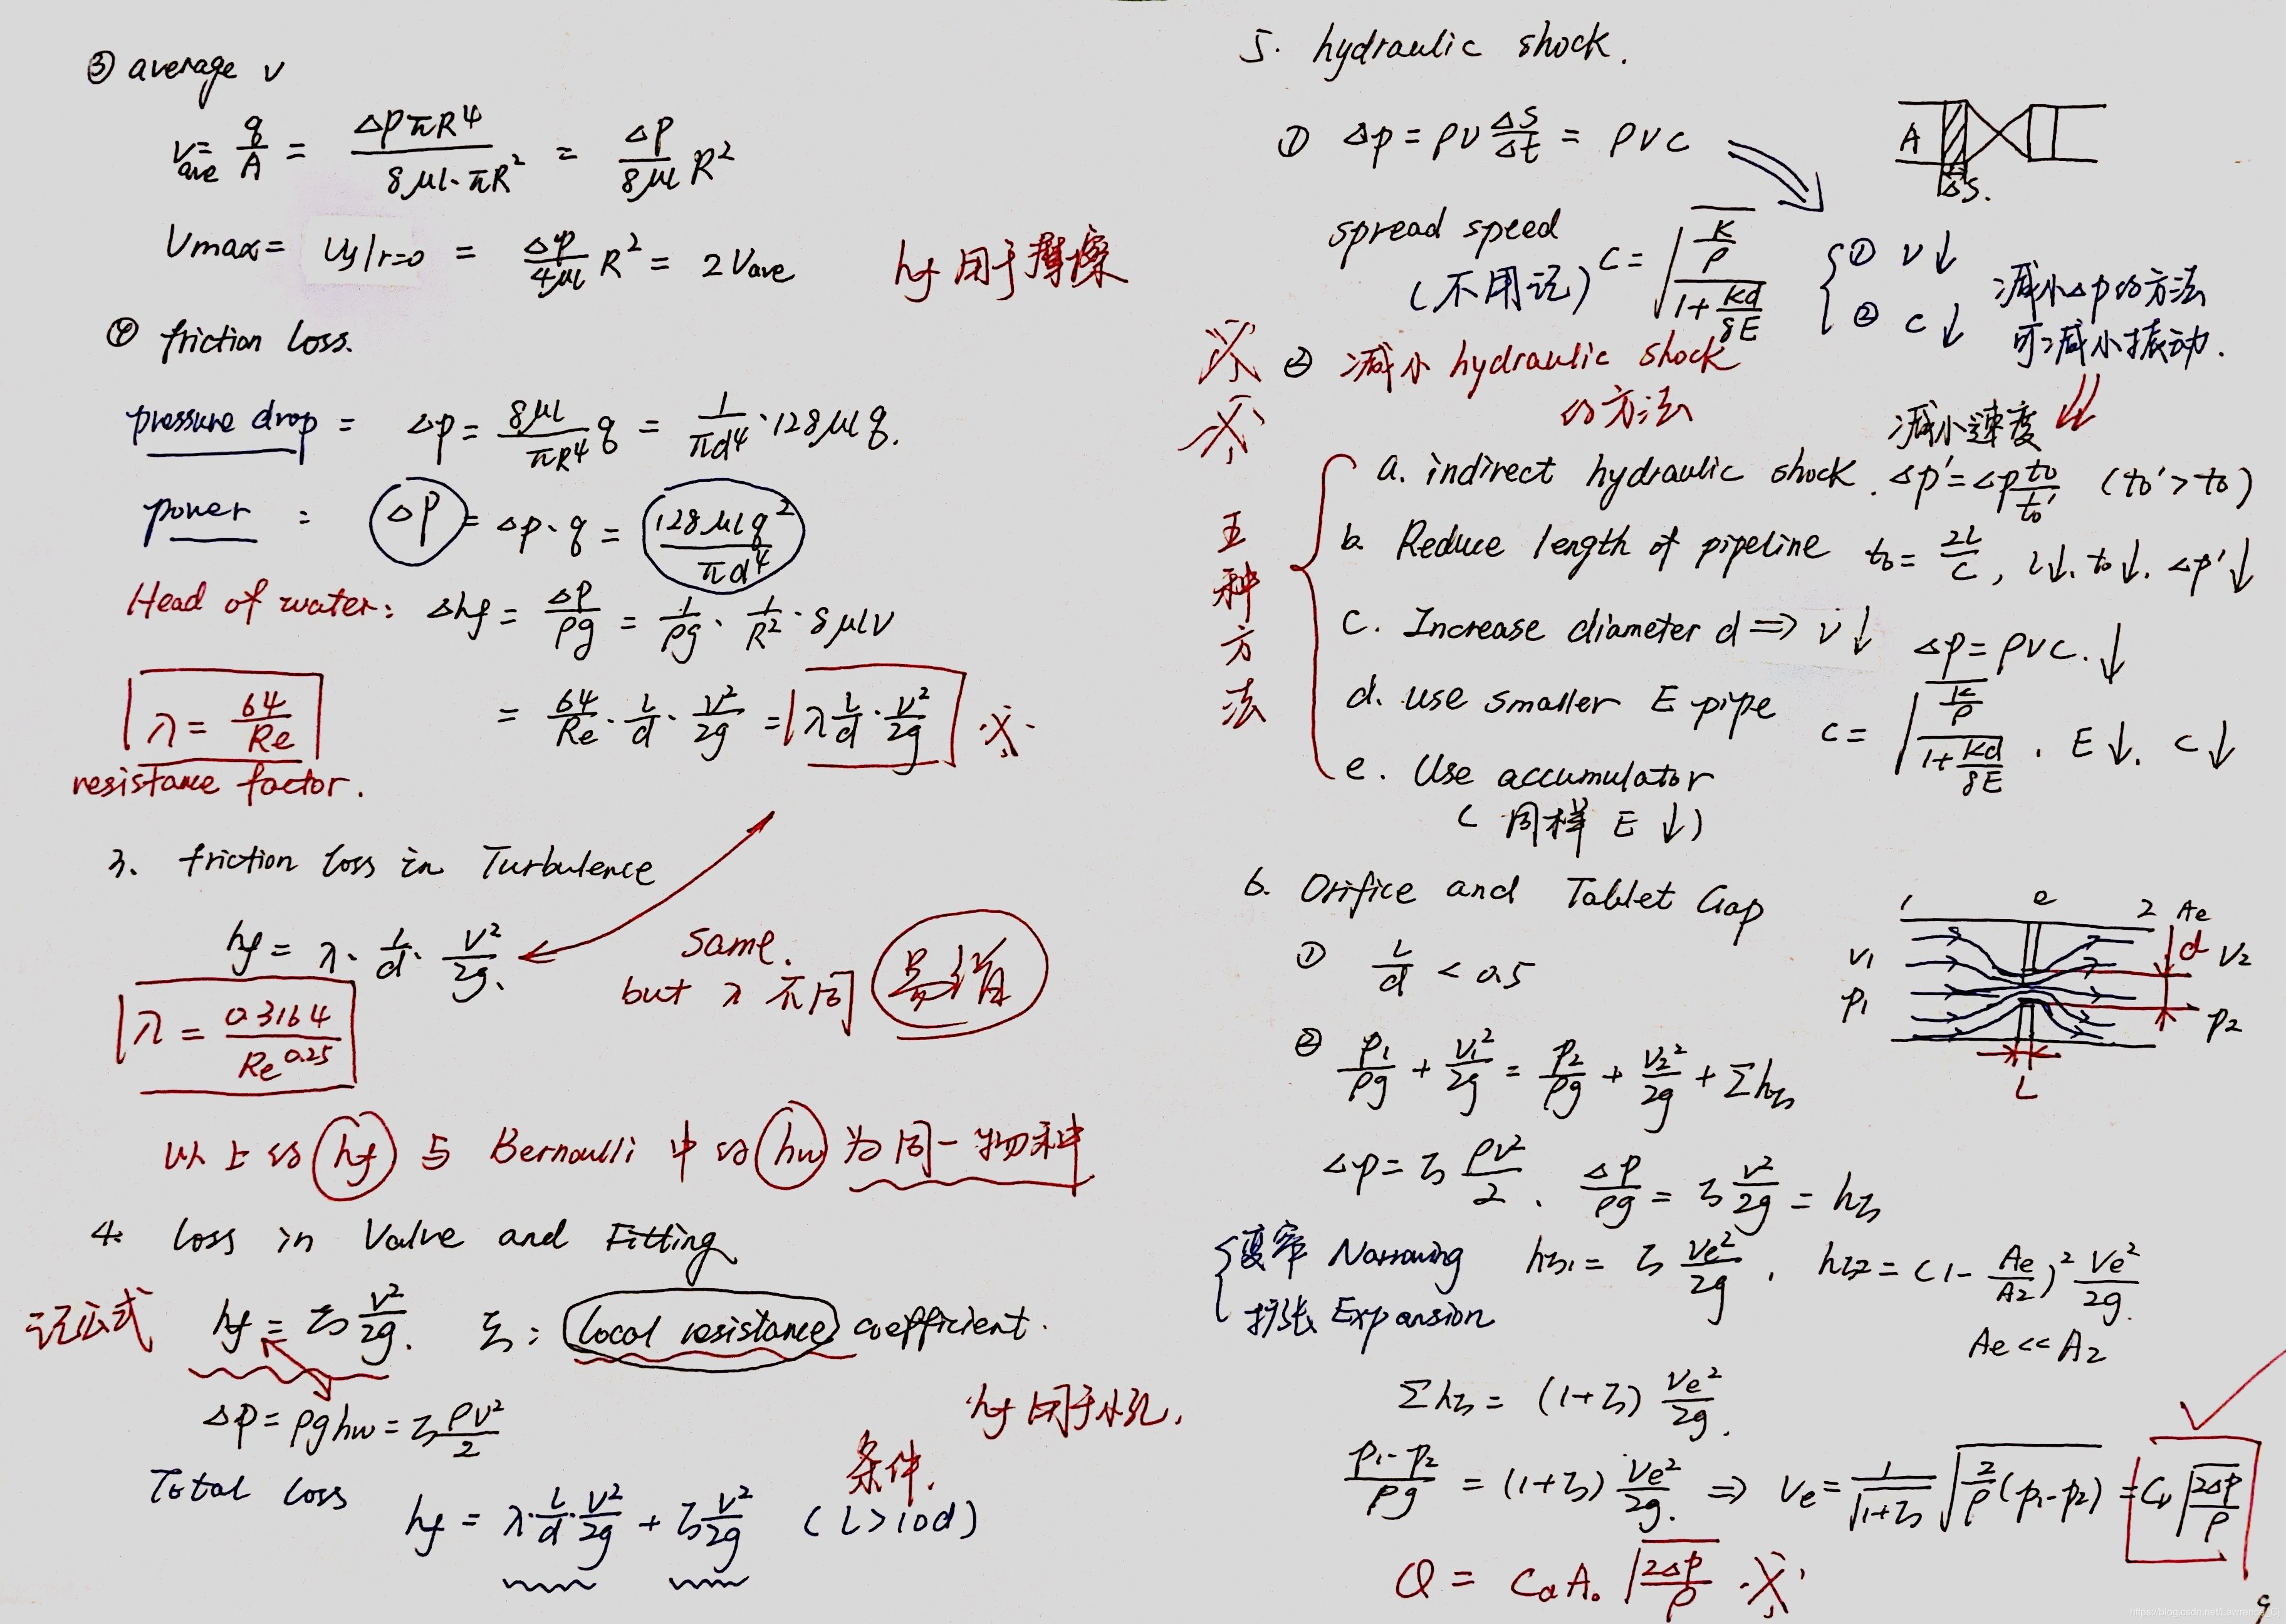 ③ average v
v_ave = q/A = ΔpπR⁴/(8μl·πR²) = Δp/(8μl) R²
Vmax = Uy|r=0 = Δp/(4μl) R² = 2Vave
hf 用于摩擦
④ friction loss.
pressure drop = Δp = 8μl/(πR⁴) q = 1/(πd⁴)·128μlq.
power : ΔP = Δp·q = 128μlq²/(πd⁴)
Head of water: Δhf = Δp/(ρg) = 1/(ρg)·1/R²·8μlv
= 64/Re·l/d·v²/(2g) = λ l/d·v²/(2g) ※
λ = 64/Re
resistance factor.
3. friction loss in Turbulence
hf = λ·l/d·v²/(2g).
same.
but λ 不同
易错
λ = 0.3164/Re^0.25
以上的 hf 与 Bernoulli 中的 hw 为同一物种
4. loss in Valve and Fitting
记公式
hf = ζ v²/(2g). ζ: local resistance coefficient.
Δp = ρghw = ζ ρv²/2
hf 用于小孔,
条件.
Total loss
hf = λ·l/d·v²/(2g) + ζ v²/(2g) (L>10d)
5. hydraulic shock.
① Δp = ρv ΔS/Δt = ρvc
A
ΔS.
spread speed
(不用记) c = √((K/ρ)/(1+Kd/(δE)))
① v↓
② c↓
减小Δp的方法
可减小振动.
※ ② 减小 hydraulic shock
的方法
※
减小速度
五种方法
a. indirect hydraulic shock. Δp' = Δp t₀/t₀' (t₀'>t₀)
b. Reduce length of pipeline t₀ = 2L/C, l↓. t₀↓. Δp'↓
c. Increase diameter d ⇒ v↓ Δp = ρvc.↓
d. use smaller E pipe c = √((K/ρ)/(1+Kd/(δE))). E↓. C↓
e. Use accumulator
(同样 E↓)
6. Orifice and Tablet Gap
① L/d < 0.5
1 e 2 Ae
v1 d v2
p1 p2
L
② p₁/(ρg) + v₁²/(2g) = p₂/(ρg) + v₂²/(2g) + Σhζ
Δp = ζ ρv²/2. Δp/(ρg) = ζ v²/(2g) = hζ
变窄 Narrowing hζ1 = ζ Ve²/(2g). hζ2 = (1 - Ae/A2)² Ve²/(2g).
扩张 Expansion
Ae << A2
Σhζ = (1+ζ) Ve²/(2g).
(p₁-p₂)/(ρg) = (1+ζ) Ve²/(2g). ⇒ Ve = 1/√(1+ζ) √(2/ρ (p₁-p₂)) = Cv √(2Δp/ρ)
Q = CdA₀ √(2Δp/ρ) ※
9